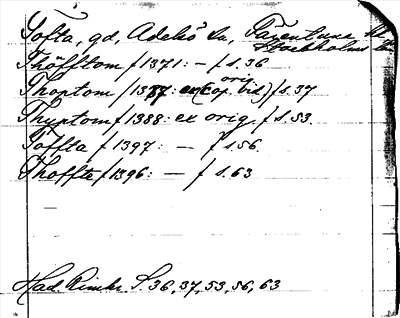 Tofta, gd, Adelsö sn, Färentuna
Stockholms
Thöfftom /1371: — / s. 36
orig.
Thoptom /1387: ex (cop. vid) / s. 37
Thyptom /1388: ex orig. / s. 53.
Toffta /1397: — / s. 56.
Thoffte /1396: — / s. 63
Had. Rimkr S. 36, 37, 53, 56, 63